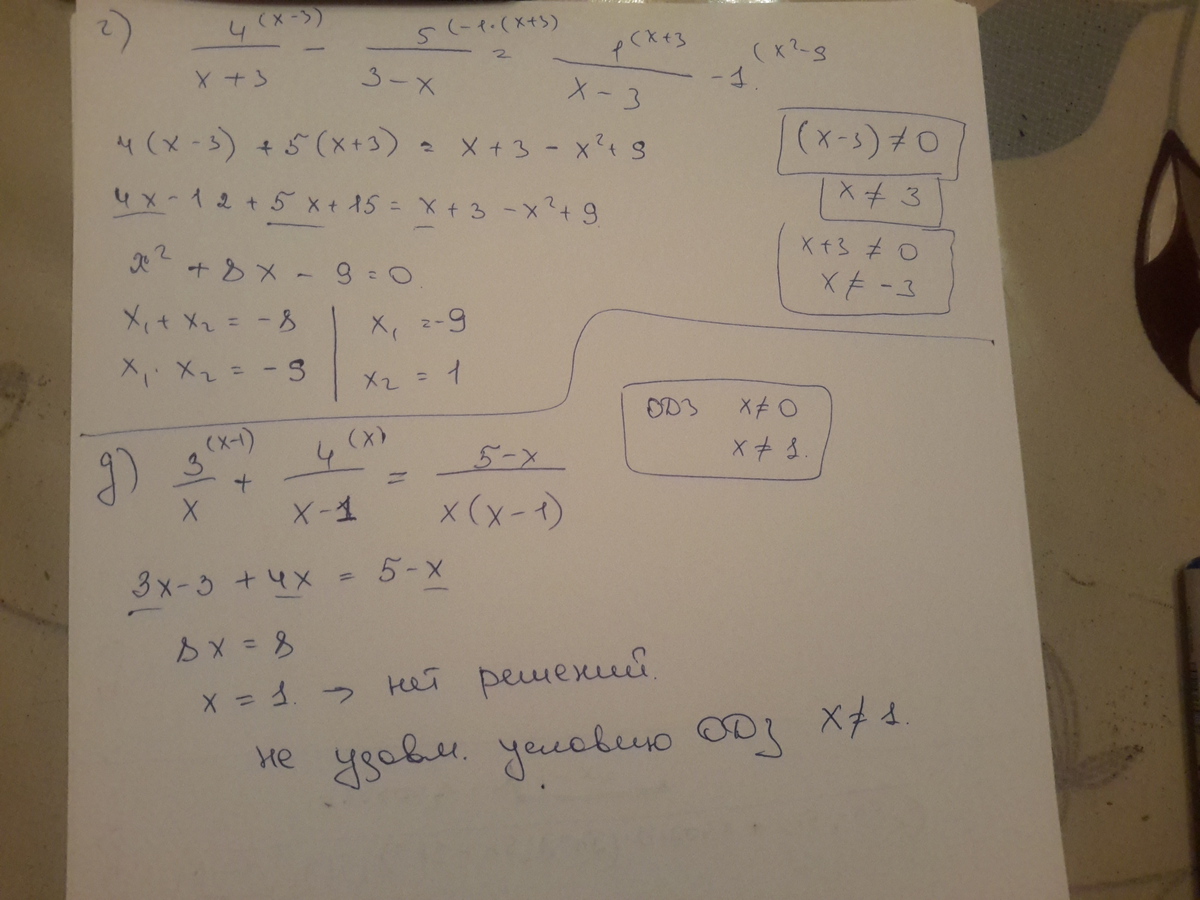 г) 4^(x-3)/(x+3) - 5^(-1·(x+3)/(3-x) = 1^(x+3/(x-3) - 1.^(x²-9
4(x-3) + 5(x+3) = x+3-x²+9
(x-3) ≠ 0
4x-12+5x+15 = x+3-x²+9
x ≠ 3
x² + 8x - 9 = 0
x+3 ≠ 0
x ≠ -3
x₁ + x₂ = -8 | x₁ = -9
x₁ · x₂ = -9 | x₂ = 1
ОДЗ x ≠ 0
x ≠ 1.
д) 3^(x-1)/x + 4^(x)/(x-1) = 5-x/x(x-1)
3x-3 + 4x = 5-x
8x = 8
x = 1. → нет решений.
не удовм. условию ОДЗ x ≠ 1.